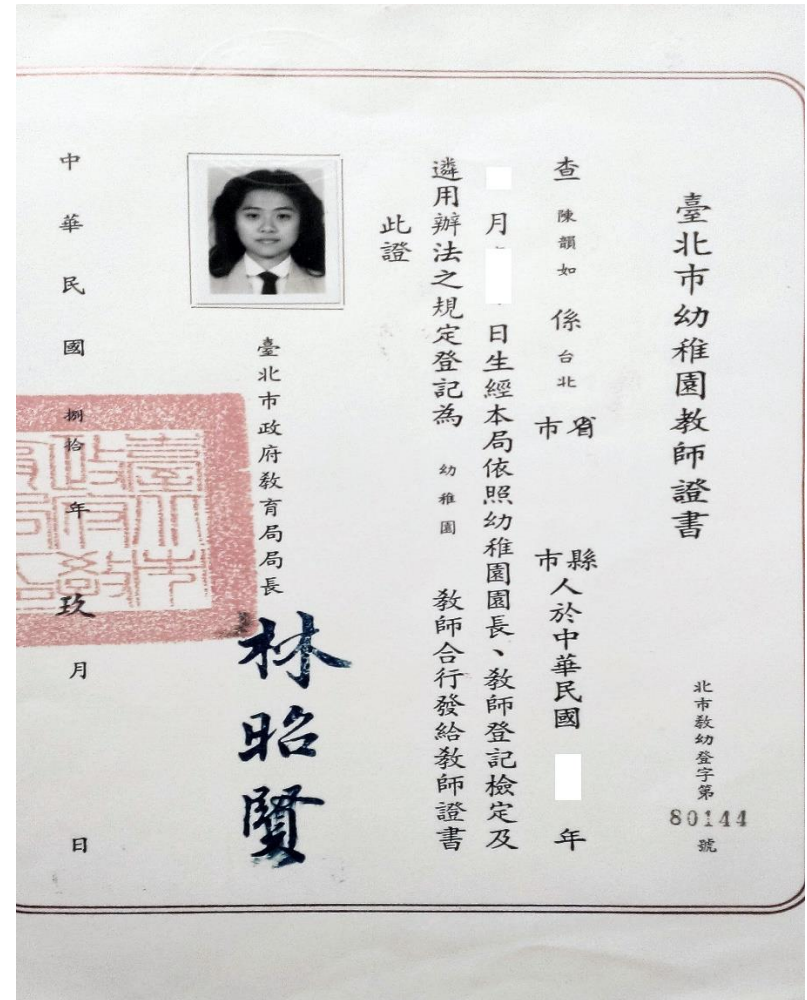 臺北市幼稚園教師證書
北市教幼登字第80144號
查陳韻如係台北省市縣市人於中華民國年
月日生經本局依照幼稚園園長、教師登記檢定及
遴用辦法之規定登記為幼稚園教師合行發給教師證書
此證
臺北市政府教育局局長林昭賢
中華民國捌拾年玖月日